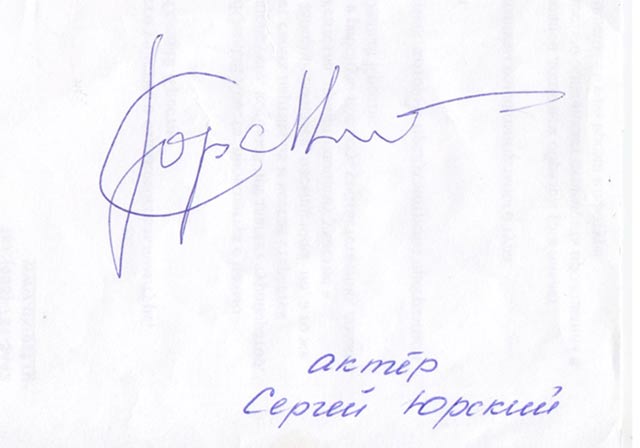 Юрский
актёр
Сергей Юрский